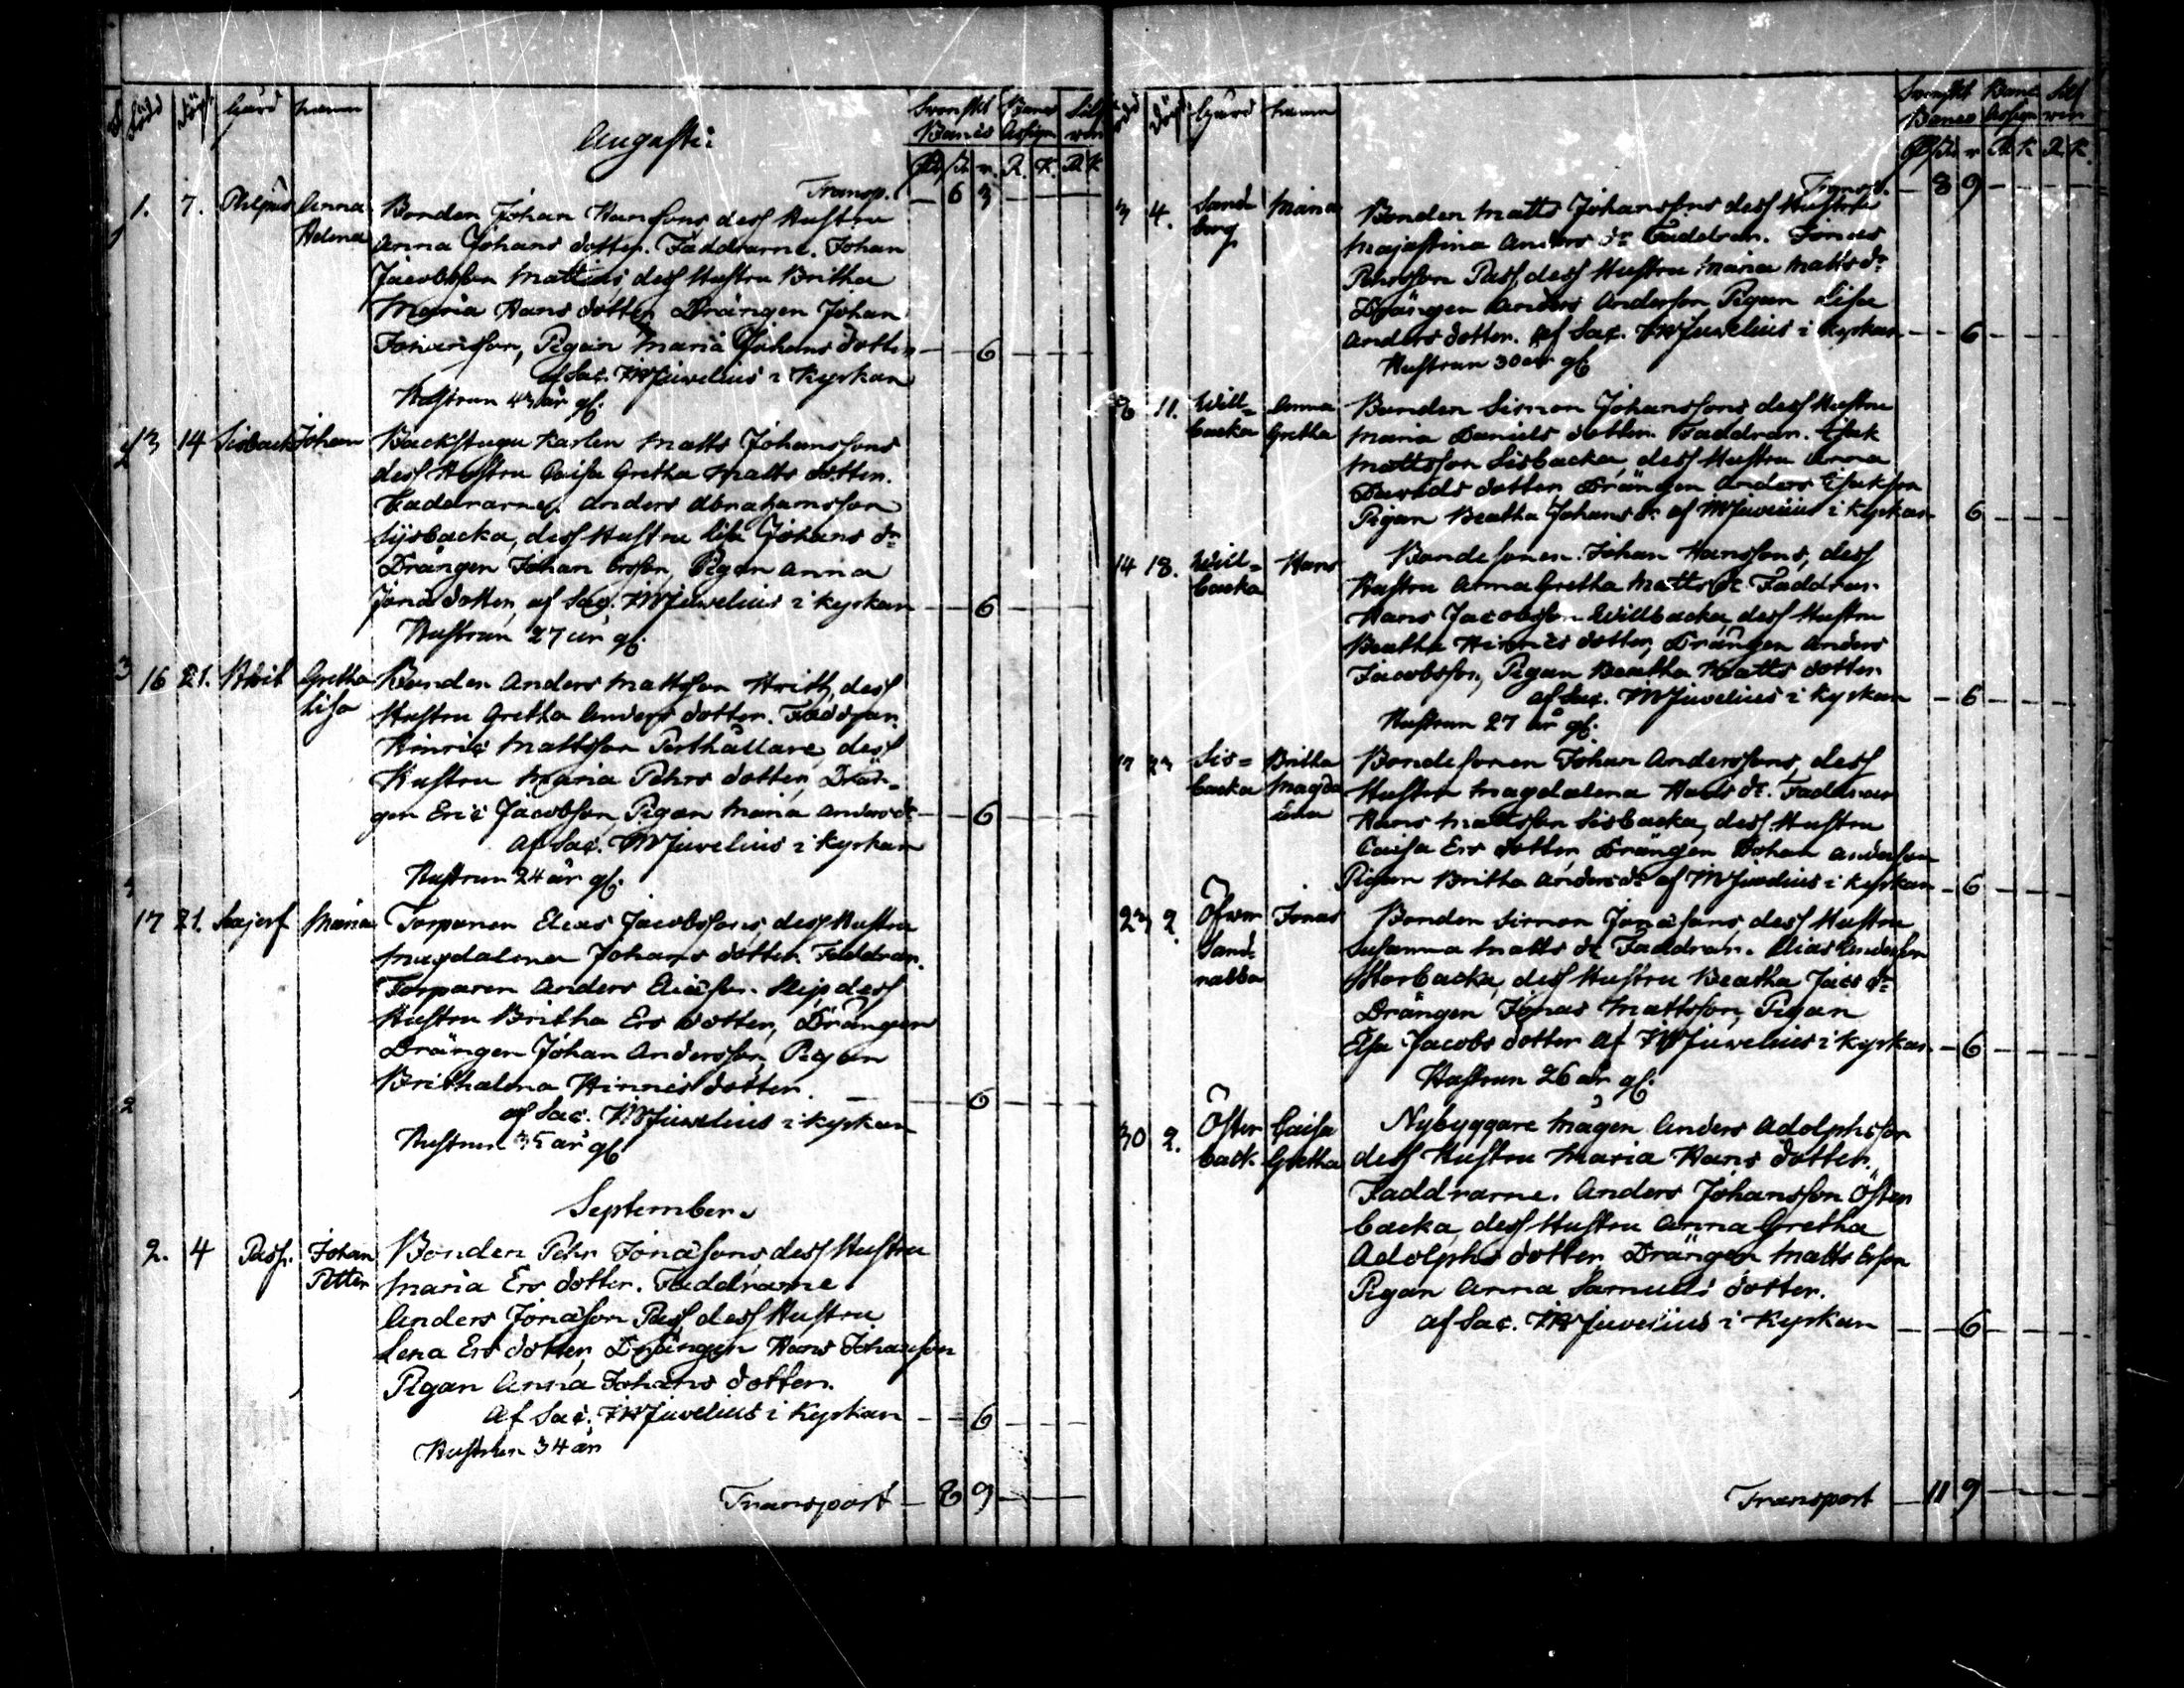 Född Döpt Gård namn Svenskt Banco Banco Assign. Silf wer
Augusti
Rd. sk. r. R. K. R. K.
Transp. — 6 3 — —
1. 7. Philpus Anna Bonden Johan Hanssons, dess Hustru
Helena Anna Johans dotter. Faddrarne. Johan
Jacobsson Mattus, dess Hustru Britha
Maria Hans dotter, Drängen Johan
Johansson, Pigan Maria Johans dotter — 6 — —
af Sac. Juvelius i Kyrkan
Hustrun 43 år gl.
13 14 Sisback Johan Backstugu Karlen Matts Johanssons
dess Hustru Caisa Gretha Matts dotter.
Faddrarne. Anders Abrahamsson
Sysbacka, dess Hustru Lisa Johans dr
Drängen Johan Ersson, Pigan Anna
Jonas dotter, af Sac. Juvelius i kyrkan — 6 — —
Hustrun 27 år gl.
3 16 21. Gretha Bonden Anders Mattsson dess
Lisa Hustru Gretha Anders dotter. Faddrar.
Hinric Mattsson dess
Hustru Maria Pehrs dotter, Drän-
gen Eric Jacobsson, Pigan Maria Anders dr — 6 — —
af Sac. Juvelius i Kyrkan
Hustrun 24 år gl.
17 21. Maria Torparen Elias Jacobssons, dess Hustru
Magdalena Johans dotter. Faddrar.
Torparen Anders Eliasson dess
Hustru Britha Ers dotter, Drängen
Drängen Johan Andersson, Pigan
Brithalena Hinrics dotter. — 6 — —
af Sac. Juvelius i kyrkan
Hustrun 35 år gl.
September
2. 4 Pass. Johan Bonden Pehr Jonasons, dess Hustru
Petter Maria Ers dotter. Faddrarne
Anders Jonason Pass, dess Hustru
Lena Ers dotter, Drängen Hans Johansson
Pigan Anna Johans dotter.
af Sac. Juvelius i Kyrkan — 6 — —
Hustrun 34 år
Transport — 8 9 — —
Född Döpt Gård namn Svenskt Banco Banco Assign Silf wer
Rd. sk. r R K R K.
Transp. — 8 9 — —
3 4. Sand Maria Bonden Matts Johanssons dess Hustru
berg Majastina Anders dr Faddrar. Jonas
Pehrsson Pass, dess Hustru Maria Matts dr
Drängen Anders Andersson Pigan Lisa
Anders dotter. af Sac. Juvelius i Kyrkan — 6 — —
Hustrun 30 år gl.
11. Will- Anna Bonden Simon Johanssons dess Hustru
backa Gretha Maria Daniels dotter. Faddrar. Isak
Mattsson Sisbacka, dess Hustru Anna
Davids dotter, Drängen Anders Isaksson
Pigan Beatha Johans dr af Juvelius i Kyrkan 6 — —
14 18. Will- Hans Bondesonen Johan Hanssons, dess
backa Hustru Anna Gretha Matts dr. Faddrar.
Hans Jacobsson Willbacka, dess Hustru
Beatha Hinrics dotter, Drängen Anders
Jacobsson, Pigan Beatha Matts dotter
af Sac. Juvelius i Kyrkan — 6 — —
Hustrun 27 år gl.
17 23 Sis- Britha Bondesonen Johan Anderssons, dess
backa Magda Hustru Magdalena Hans dr. Faddrar
lena Hans Mattsson Sisbacka, dess Hustru
Caisa Ers dotter, Drängen Johan Andersson
Pigan Britha Anders dr af Juvelius i Kyrkan — 6 — —
23 2. Öfwer Jonas Bonden Simon Jonasons, dess Hustru
Sand- Susanna Matts dr Faddrar. Elias Andersson
nabba Storbacka, dess Hustru Beatha Jacs dr
Drängen Jonas Mattsson, Pigan
Elsa Jacobs dotter af Juvelius i Kyrkan — 6 — —
Hustrun 26 år gl.
30 2. Öster Caisa Nybyggare Mågen Anders Adolphsson
back. Gretha dess Hustru Maria Hans dotter.
Faddrarne. Anders Johansson Öster
backa, dess Hustru Anna Gretha
Adolphs dotter, Drängen Matts Ersson
Pigan Anna Samuels dotter.
af Sac. Juvelius i Kyrkan — 6 — —
Transport — 11 9 — —